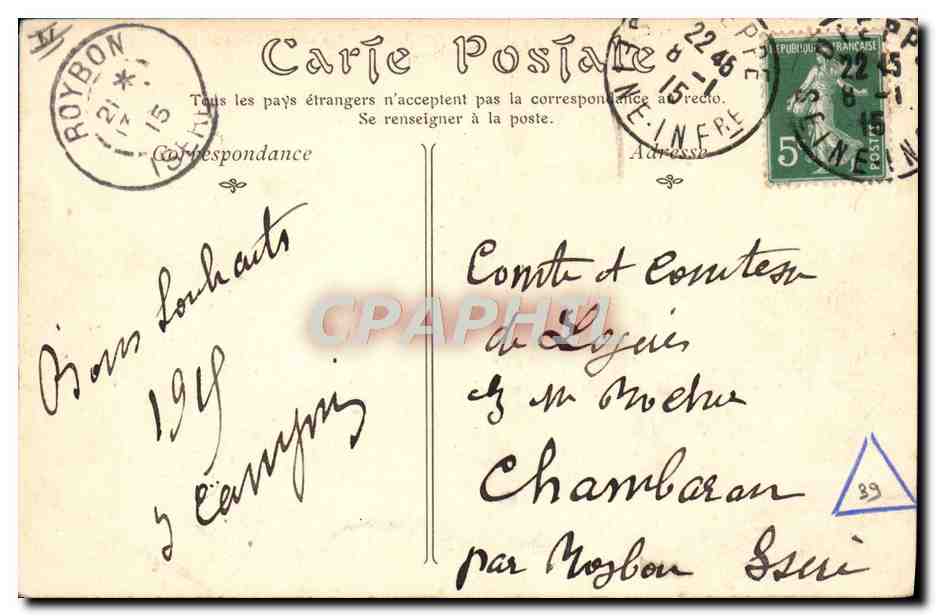 Carte Postale
Tous les pays étrangers n'acceptent pas la correspondance au recto.
Se renseigner à la poste.
Correspondance
Adresse
ROYBON
21 - 1
15
ISERE
22 45
8 - 1
15
INE-INFRE
REPUBLIQUE FRANÇAISE
5
POSTES
22 45
8 - 1
15
SEINE-IN
Bons Souhaits
1915
Comte et Comtesse
de
ch M Rocher
Chambaran
par Roybon Isère
39
CPAPHIL